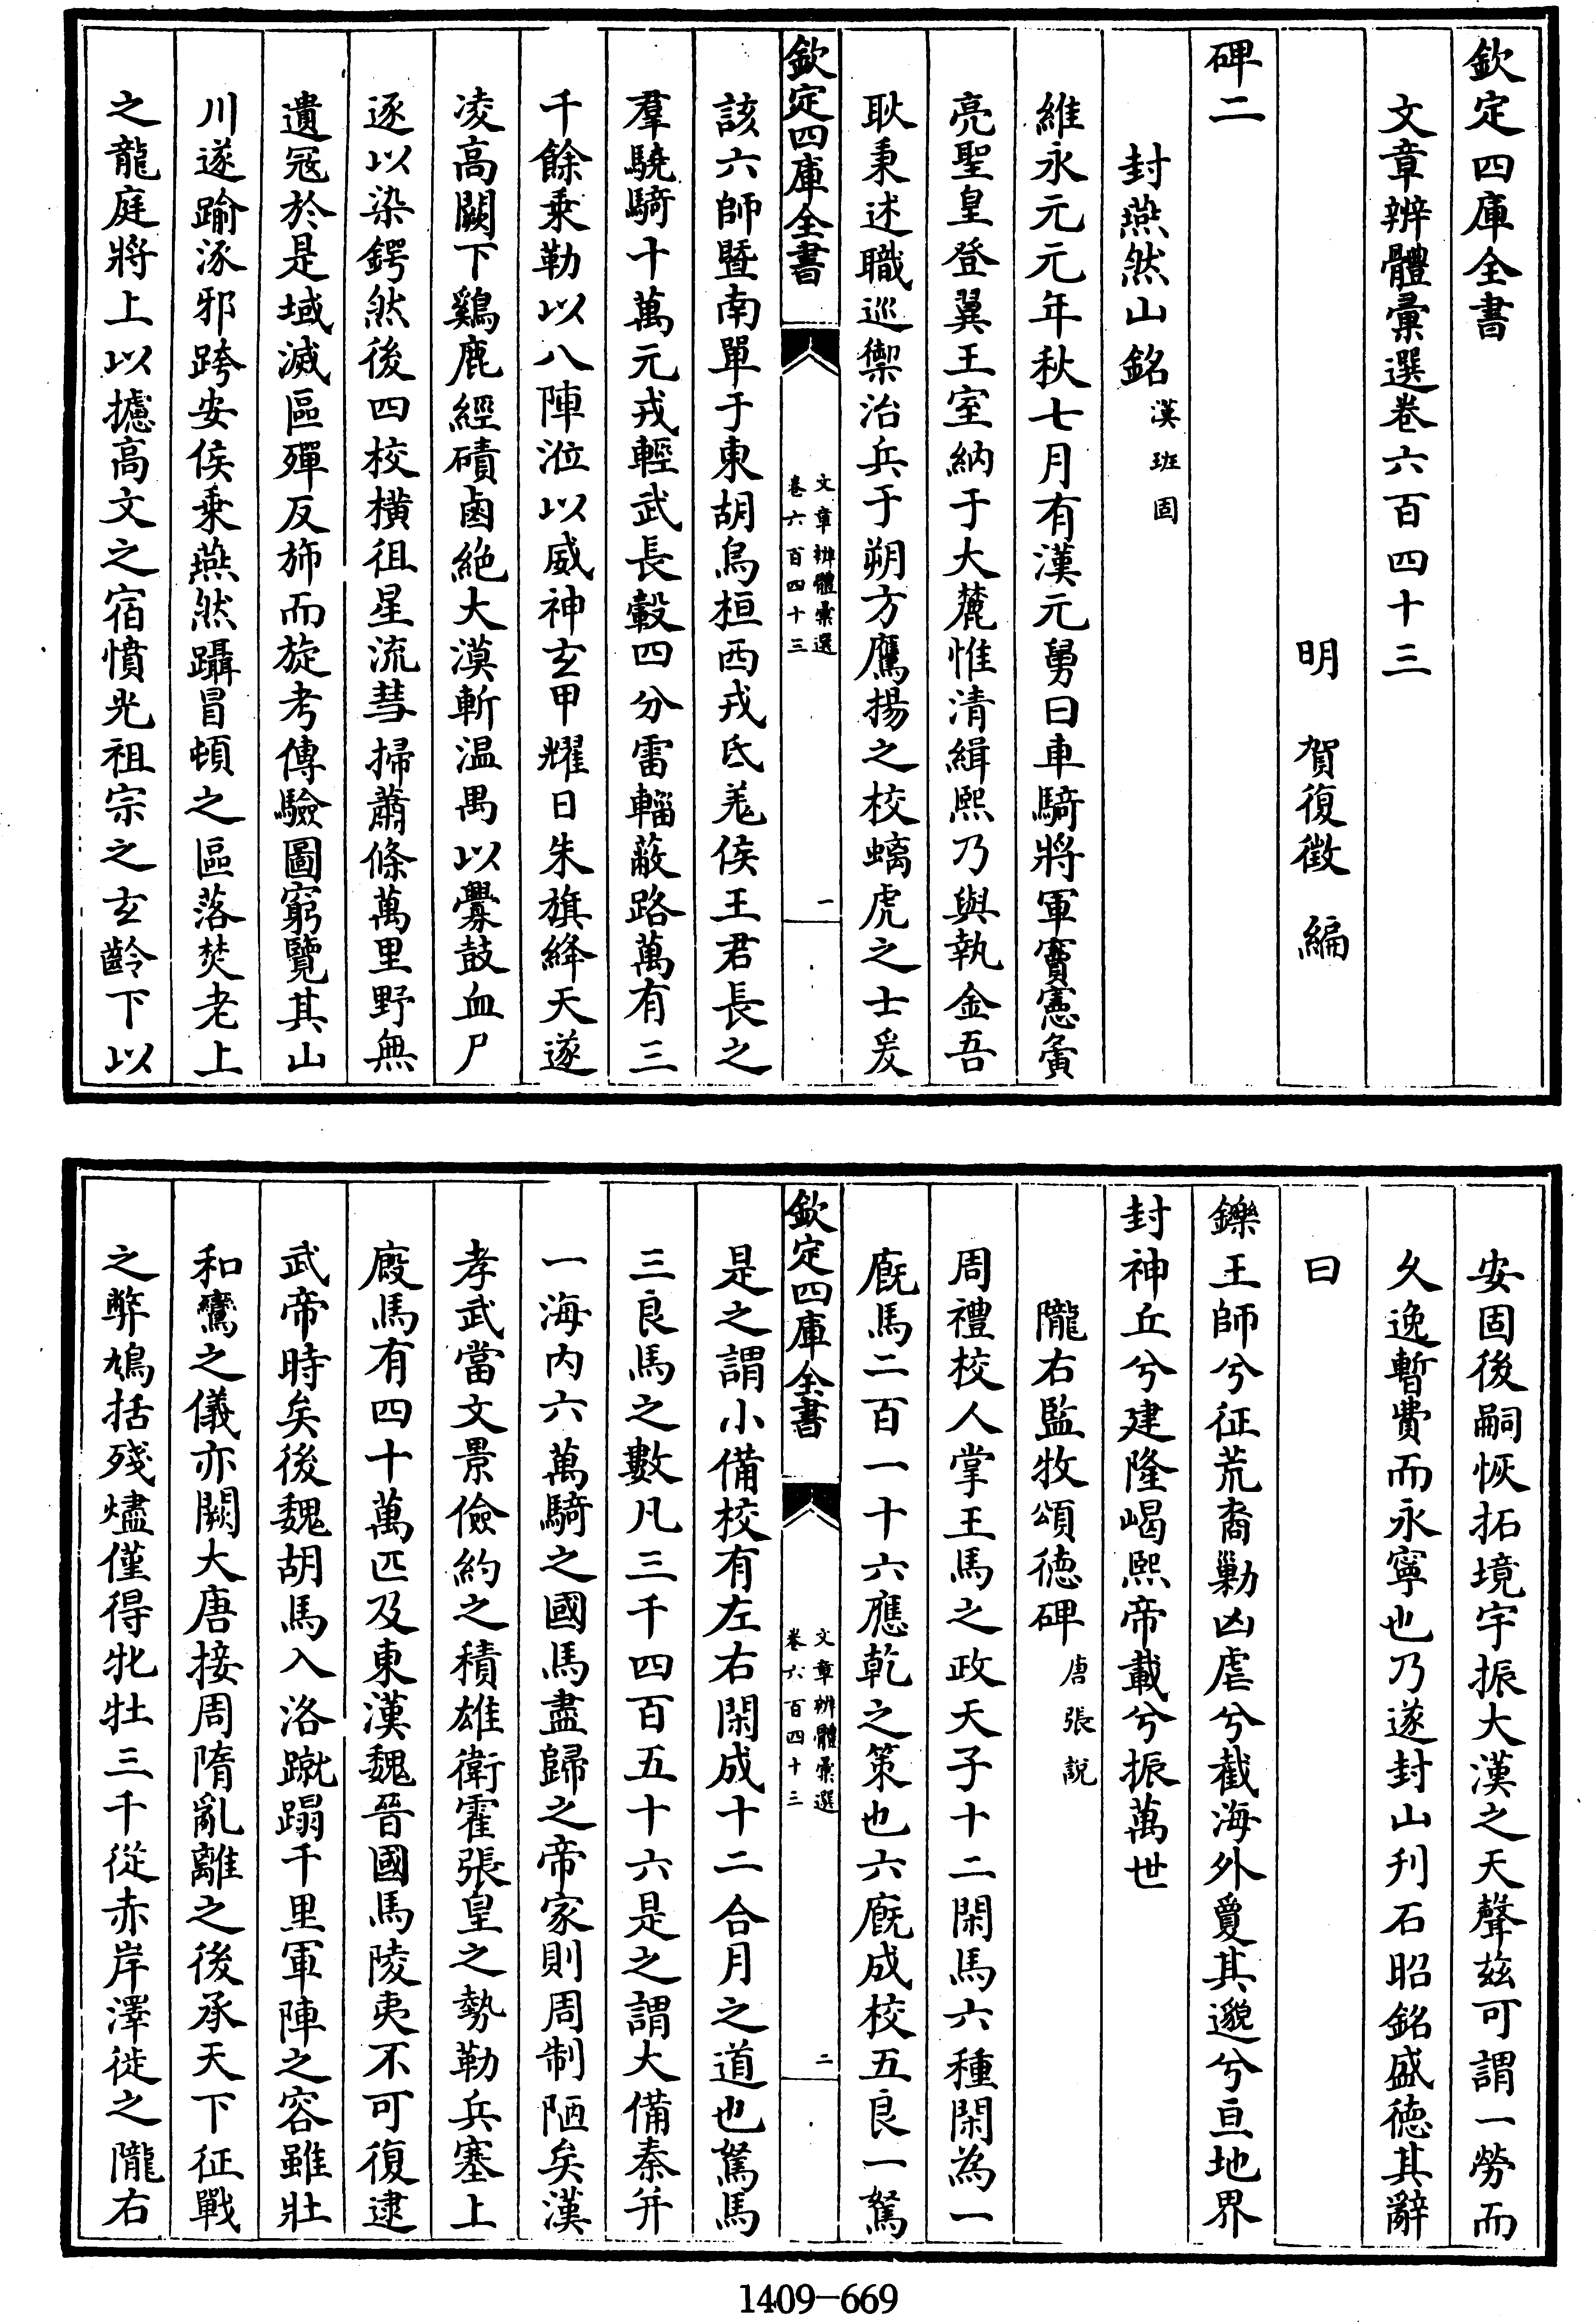 欽定四庫全書
文章辨體彙選卷六百四十三
明 賀復徵 編
碑二
封燕然山銘漢班固
維永元元年秋七月有漢元舅曰車騎將軍竇憲夤
亮聖皇登翼王室納于大麓惟清緝熙乃與執金吾
耿秉述職巡禦治兵于朔方鷹揚之校螭虎之士爰
欽定四庫全書
文章辨體彙選
卷六百四十三
一
該六師暨南單于東胡烏桓西戎氐羌侯王君長之
羣驍騎十萬元戎輕武長轂四分雷輜蔽路萬有三
千餘乘勒以八陣涖以威神玄甲耀日朱旗絳天遂
凌高闕下鷄鹿經磧鹵絶大漠斬温禺以釁鼓血尸
逐以染鍔然後四校橫徂星流彗掃蕭條萬里野無
遺冦於是域滅區殫反斾而旋考傳驗圖窮覽其山
川遂踰涿邪跨安侯乘燕然躡冒頓之區落焚老上
之龍庭將上以攄高文之宿憤光祖宗之玄齡下以
安固後嗣恢拓境宇振大漢之天聲兹可謂一勞而
久逸暫費而永寧也乃遂封山刋石昭銘盛德其辭
曰
鑠王師兮征荒裔勦凶虐兮截海外敻其邈兮亘地界
封神丘兮建隆嵑熙帝載兮振萬世
隴右監牧頌德碑唐張說
周禮校人掌王馬之政天子十二閑馬六種閑為一
廐馬二百一十六應乾之策也六廐成校五良一駑
欽定四庫全書
文章辨體彙選
卷六百四十三
二
是之謂小備校有左右閑成十二合月之道也駑馬
三良馬之數凡三千四百五十六是之謂大備秦并
一海内六萬騎之國馬盡歸之帝家則周制陋矣漢
孝武當文景儉約之積雄衛霍張皇之勢勒兵塞上
廐馬有四十萬匹及東漢魏晉國馬陵夷不可復逮
武帝時矣後魏胡馬入洛蹴蹋千里軍陣之容雖壯
和鸞之儀亦闕大唐接周隋亂離之後承天下征戰
之弊鳩括殘燼僅得牝牡三千從赤岸澤徙之隴右
1409-669